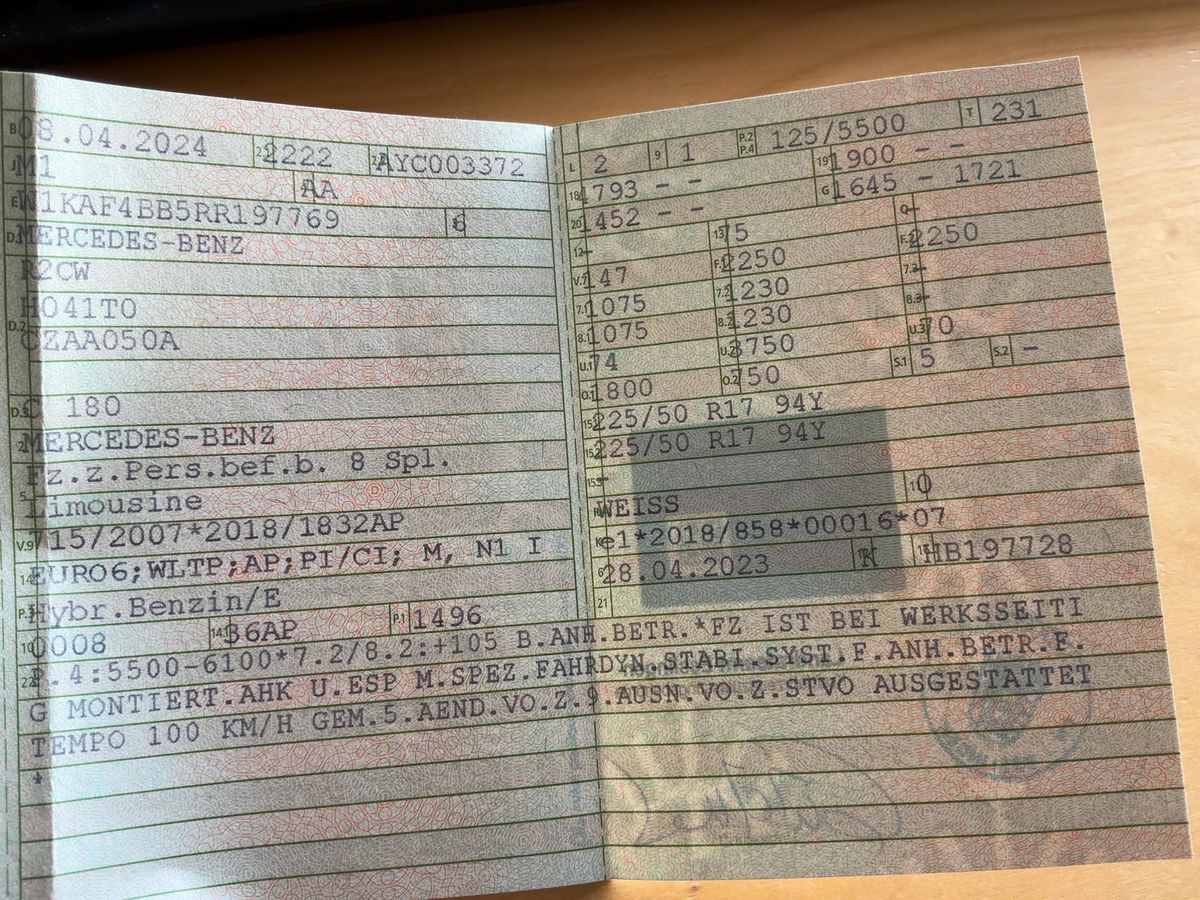 B 08.04.2024 2.1 2222 2.2 AYC003372
J M1 AA
E W1KAF4BB5RR197769 6
D.1 MERCEDES-BENZ
R2CW
D.2 H041T0
CZAA050A
D.3 C 180
2 MERCEDES-BENZ
Fz.z.Pers.bef.b. 8 Spl.
5 Limousine
V.9 715/2007*2018/1832AP
14 EURO6;WLTP;AP;PI/CI; M, N1 I
P.3 Hybr.Benzin/E
10 0008 14.1 36AP P.1 1496
22 P.4:5500-6100*7.2/8.2:+105 B.ANH.BETR.*FZ IST BEI WERKSSEITI
G MONTIERT.AHK U.ESP M.SPEZ.FAHRDYN.STABI.SYST.F.ANH.BETR.F.
TEMPO 100 KM/H GEM.5.AEND.VO.Z.9.AUSN.VO.Z.STVO AUSGESTATTET
*
L 2 9 1 P.2 P.4 125/5500 T 231
18 4793 - - 19 1900 - -
20 1452 - - G 1645 - 1721
12 - 13 75 Q -
V.7 147 F.1 2250 F.2 2250
7.1 1075 7.2 1230 7.3 -
8.1 1075 8.2 1230 8.3 -
U.1 74 U.2 3750 U.3 70
O.1 1800 O.2 750 S.1 5 S.2 -
15.1 225/50 R17 94Y
15.2 225/50 R17 94Y
15.3 -
R WEISS 11 0
K e1*2018/858*00016*07
6 28.04.2023 17 K 16 HB197728
21